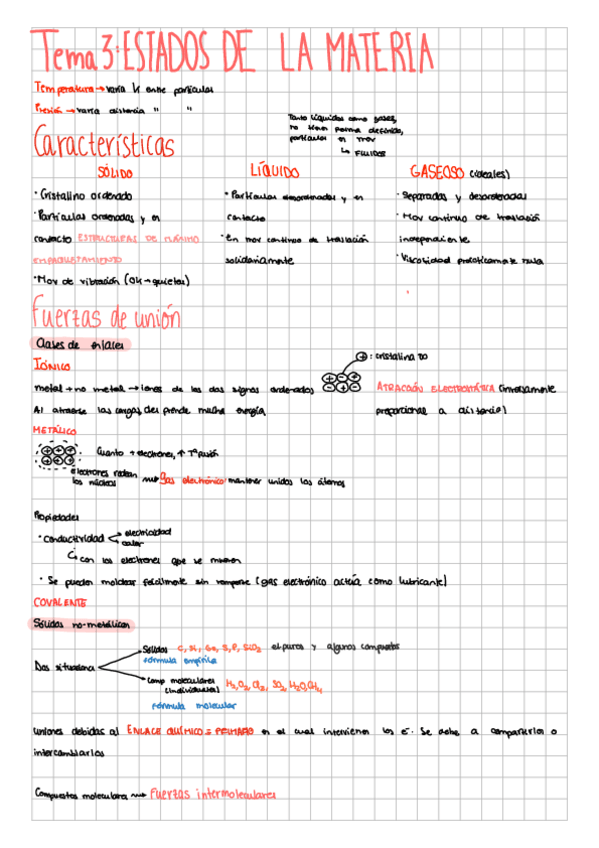 Tema 3: ESTADOS DE LA MATERIA
Temperatura → varía V entre partículas
Presión → varía distancia " "
Tanto líquidos como gases,
no tienen forma definida,
partículas en mov
↳ FLUIDOS
Características
SÓLIDO
LÍQUIDO
GASEOSO (ideales)
· Cristalino ordenado
· Partículas ordenadas y en
contacto ESTRUCTURAS DE MÁXIMO
EMPAQUETAMIENTO
· Mov de vibración (0K → quietas)
· Partículas desordenadas y en
contacto
· En mov continuo de traslación
solidariamente
· Separadas y desordenadas
· Mov continuo de traslación
independiente
· Viscosidad prácticamente nula
Fuerzas de unión
Clases de enlaces
IÓNICO
+ : cristalina
metal + no metal → Iones de los dos signos ordenados
ATRACCIÓN ELECTROSTÁTICA (inversamente
Al atraerse las cargas, desprende mucha energía
proporcional a distancia)
METÁLICO
Cuanto + electrones, ↑ Tª fusión
electrones rodean
los núcleos
Gas electrónico: mantener unidos los átomos
Propiedades
· Conductividad
electricidad
calor
↳ con los electrones que se mueven
· Se pueden moldear fácilmente sin romperse (gas electrónico actúa como lubricante)
COVALENTE
Sólidos no-metálicos
Dos situaciones
Sólidos C, Si, Ge, S, P, SiO2 el. puros y algunos compuestos
fórmula empírica
Comp moleculares H2, O2, Cl2, SO2, H2O, CH4
(individuales)
fórmula molecular
Uniones debidas al ENLACE QUÍMICO = PRIMARIO en el cual intervienen los e-. Se debe a compartirlos o
intercambiarlos
Compuestos moleculares → Fuerzas intermoleculares